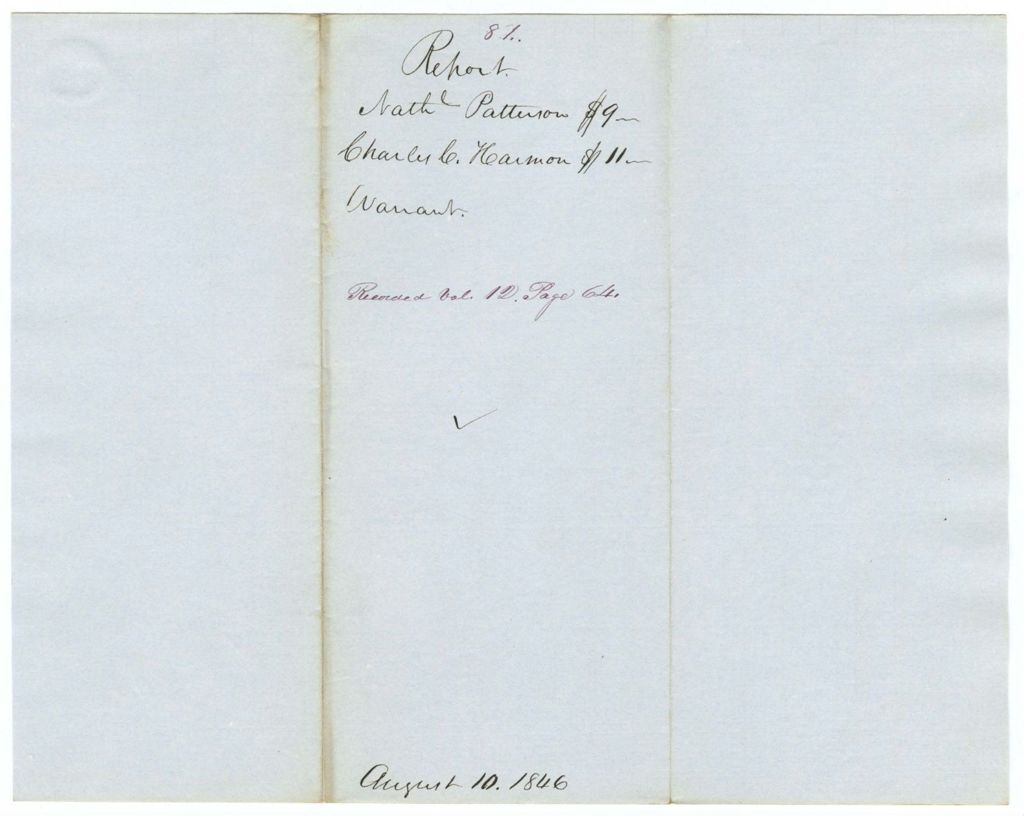 81.
Report.
Nathl Patterson $9—
Charles C. Harmon $11—
Warrant.
Recorded Vol. 12. Page 64.
August 10. 1846